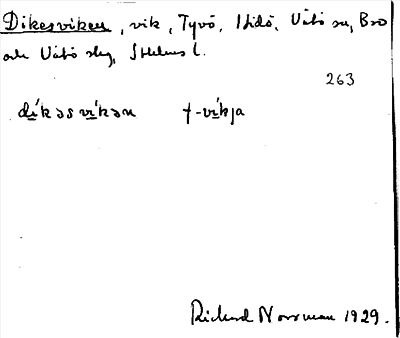 Dikesviken, vik, Tyvö, Hidö, Vätö sn, Bro
och Vätö skg, Sthlms l.
263
dí̱kəsví̱kən f-ví̱kja
Rickard Norrman 1929.